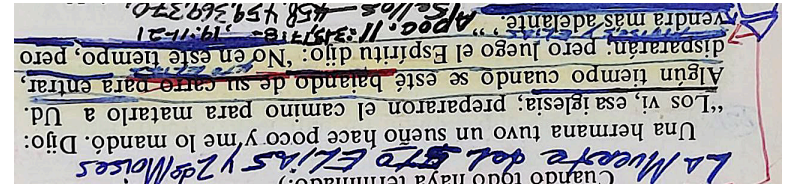 Cuando todo haya terminado
La Muerte del 5TO ELIAS y 2do Moises
Una hermana tuvo un sueño hace poco y me lo mandó. Dijo:
“Los vi, esa iglesia, prepararon el camino para matarlo a Ud.
Algún tiempo cuando se esté bajando de su carro para entrar,
dispararán; pero luego el Espíritu dijo: ‘No en este tiempo, pero
vendrá más adelante.’”
Apoc. 11: 19:11-21
Sellos — 458, 459, 369, 370